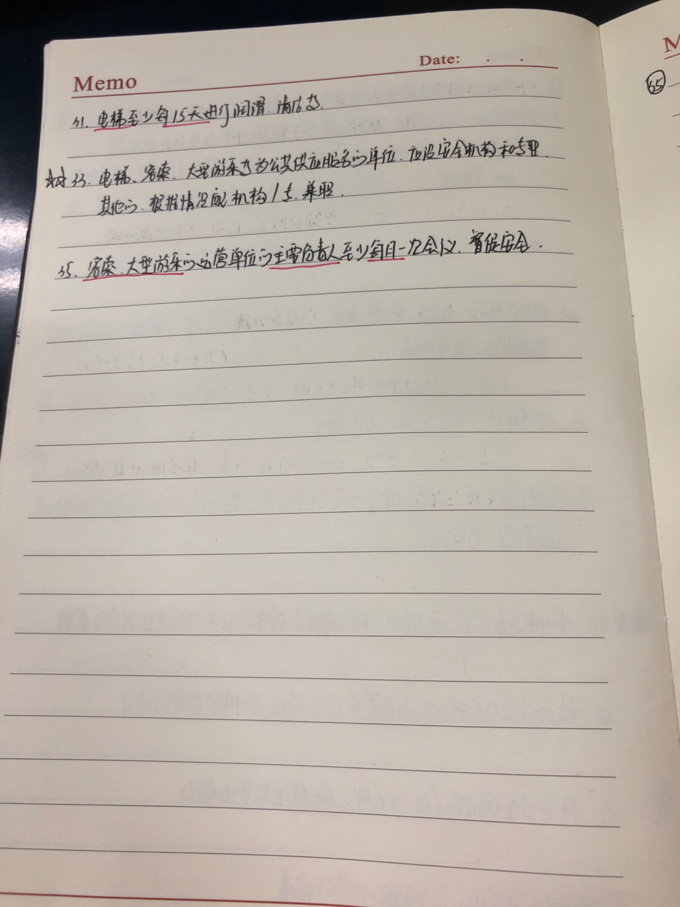 Memo
Date: . .
31. 电梯至少每15天进行润滑、清洁
33. 电梯、客索、大型游乐为公共供应服务的单位、应设安全机构和专职
其他的、根据情况配机构/专、兼职.
35. 客索、大型游乐的运营单位的主要负责人至少每月一次会议、督促安全.
M
35